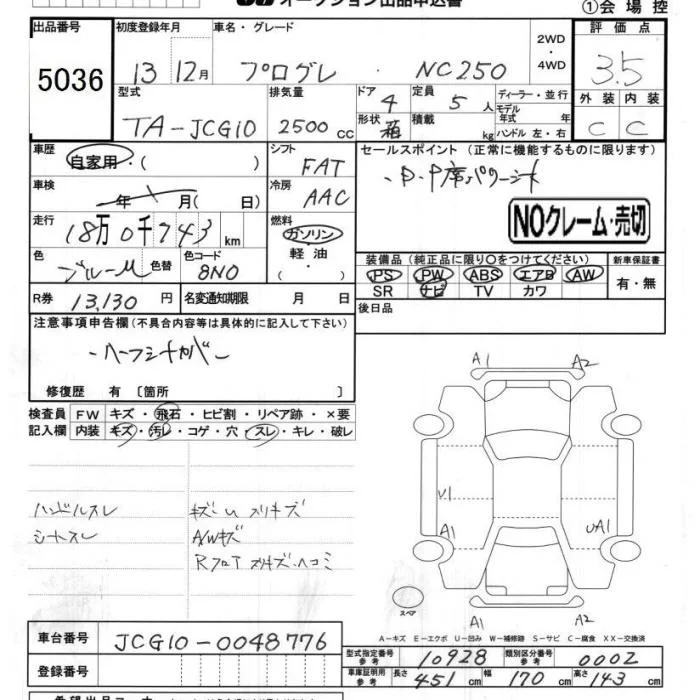 オークション出品申込書
①会場控
出品番号
5036
初度登録年月
13 12月
車名・グレード
プログレ ・ NC250
2WD
・
4WD
評価点
3.5
外装 内装
C C
型式
TA-JCG10
排気量
2500 cc
ドア
4
形状
箱
定員
5 人
積載
kg
ディーラー・並行
モデル
年式 年
ハンドル 左・右
車歴
自家用・( )
シフト
FAT
車検
年 月( 日)
冷房
AAC
走行
18万0千743 km
燃料
ガソリン
・
軽油
・
( )
色
ブルーM 色替
色コード
8N0
R券 13,130 円
名変通知期限 月 日
セールスポイント(正常に機能するものに限ります)
・D・P席パワーシート
NOクレーム・売切
装備品(純正品に限り〇をつけてください)
PS PW ABS エアB AW
SR ナビ TV カワ
新車保証書
有・無
後日品
注意事項申告欄(不具合内容等は具体的に記入して下さい)
・ハーフシートカバー
修復歴 有〔箇所 〕
検査員
記入欄
FW キズ・飛石・ヒビ割・リペア跡・×要
内装 キズ・汚レ・コゲ・穴・スレ・キレ・破レ
ハンドルスレ
シートスレ
キズ・U スリキズ
A/Wキズ
Rフロア スリキズ・ヘコミ
A1 A2
U1
A1 UA1
スペア
A1 A2
A-キズ E-エクボ U-凹み W-補修跡 S-サビ C-腐食 XX-交換済
車台番号 JCG10-0048776
登録番号
型式指定番号
参考
10928
類別区分番号
参考
0002
車庫証明用
参考
長さ 451 cm 幅 170 cm 高さ 143 cm